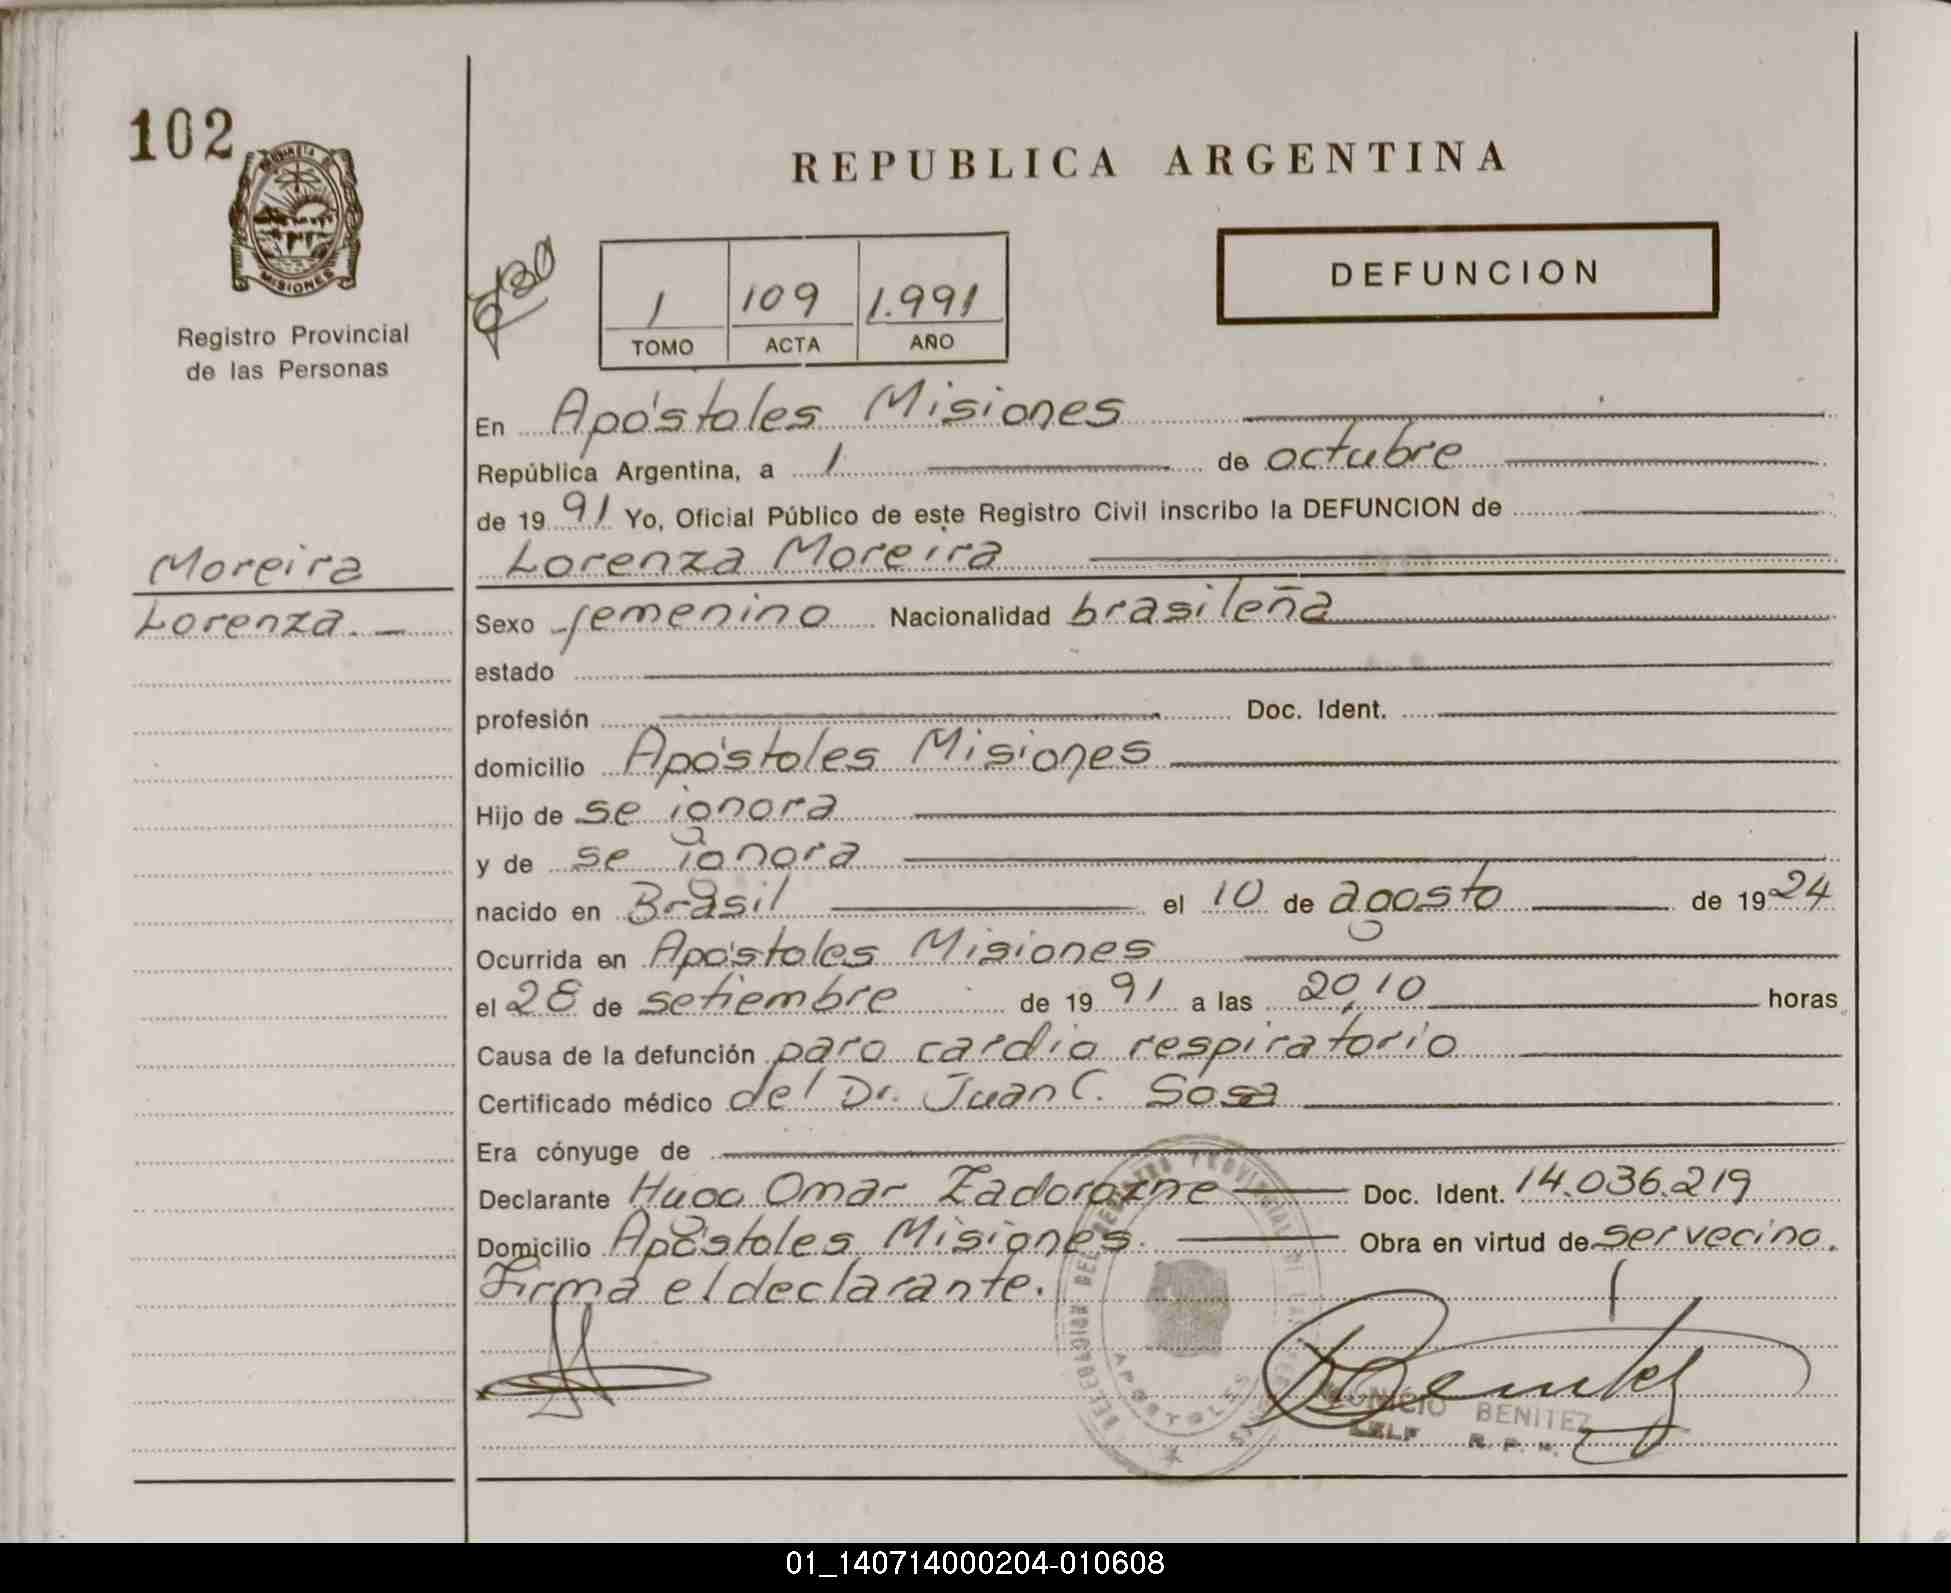 102
MISIONES
Registro Provincial
de las Personas
REPUBLICA ARGENTINA
DEFUNCION
1 109 1.991
TOMO ACTA AÑO
En Apóstoles Misiones
República Argentina, a 1 de octubre
de 19 91 Yo, Oficial Público de este Registro Civil inscribo la DEFUNCION de
Moreira
Lorenza Moreira
Lorenza. -
Sexo femenino Nacionalidad brasileña
estado
profesión Doc. Ident.
domicilio Apóstoles Misiones
Hijo de se ignora
y de se ignora
nacido en Brasil el 10 de agosto de 19 24
Ocurrida en Apóstoles Misiones
el 28 de setiembre de 19 91 a las 20,10 horas
Causa de la defunción paro cardio respiratorio
Certificado médico del Dr. Juan C. Sosa
Era cónyuge de
Declarante Hugo Omar Zadorozne Doc. Ident. 14.036.219
Domicilio Apóstoles Misiones. Obra en virtud de ser vecino.
Firma el declarante.
APOSTOLES
BENITEZ
R. P. M.
01_140714000204-010608